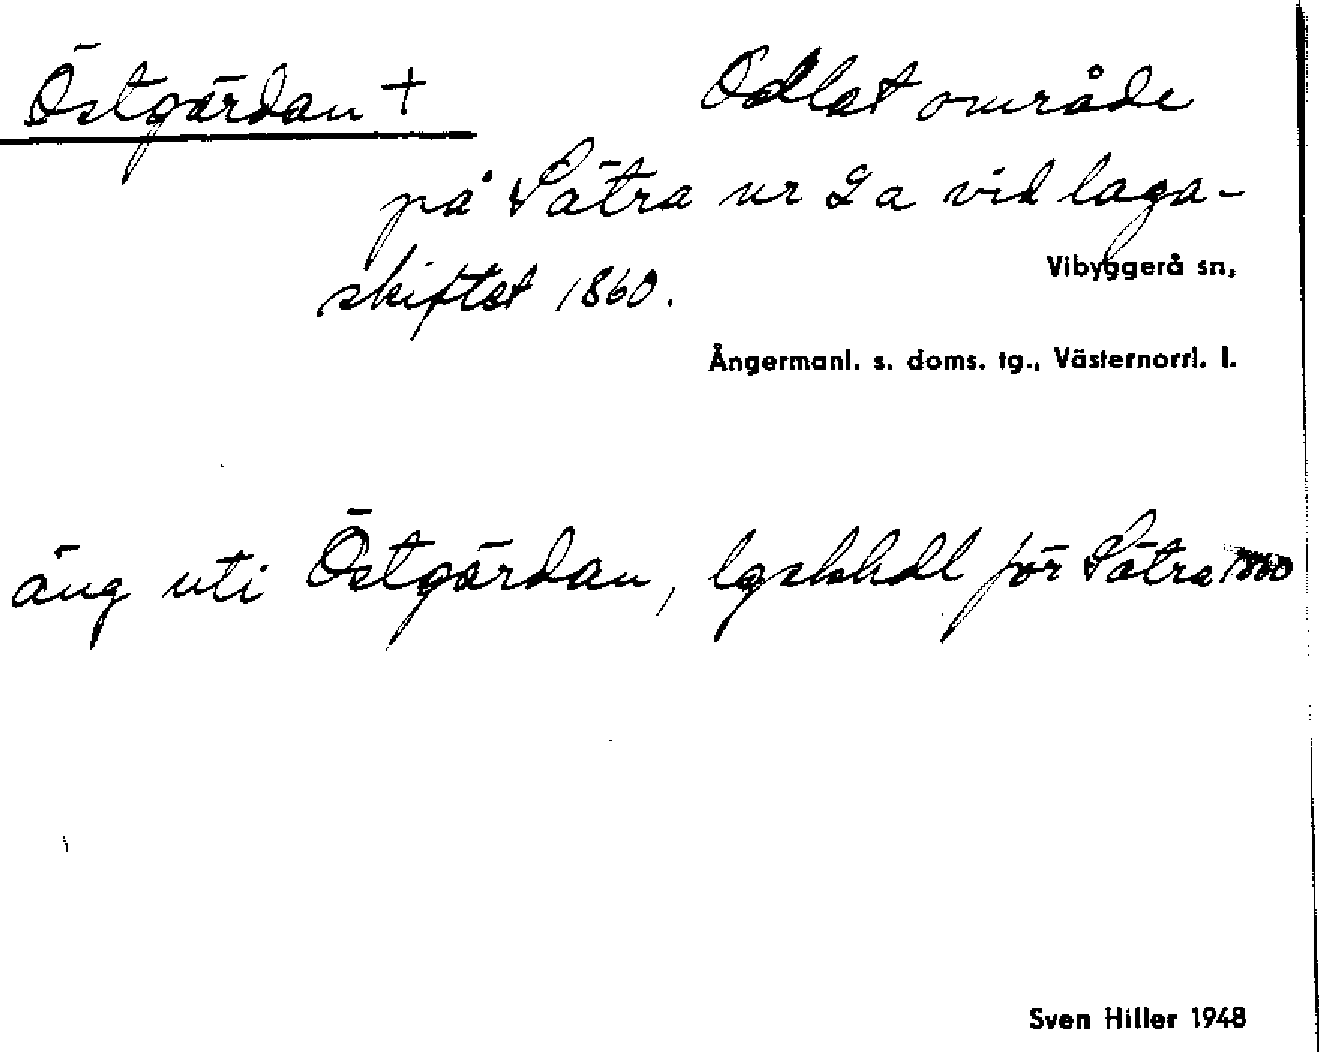 Östgärdan + Odlat område
på Sätra nr 2a vid laga-
skiftet 1860.
Vibyggerå sn,
Ångermanl. s. doms. tg., Västernorrl. l.
äng uti Östgärdan, lgskhdl för Sätra 1860
Sven Hiller 1948